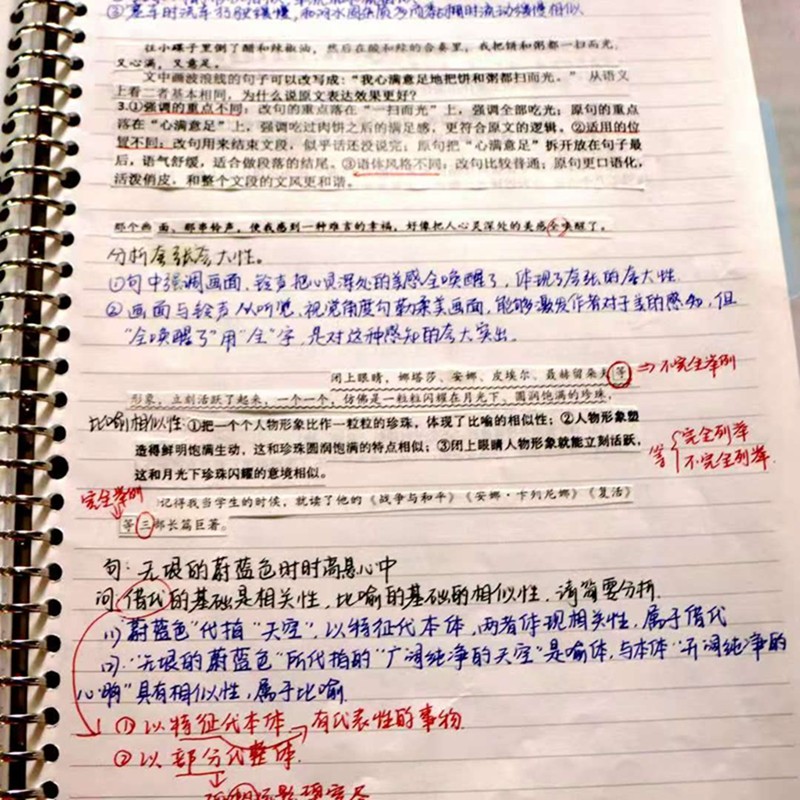 ②塞车时汽车行驶缓慢,和河水因杂质多而黏稠时流动缓慢相似
往小碟子里倒了醋和辣椒油,然后在酸和辣的合奏里,我把饼和粥都一扫而光,
又心满,又意足。
文中画波浪线的句子可以改写成:“我心满意足地把饼和粥都扫而光。”从语义
上看二者基本相同,为什么说原文表达效果更好?
3.①强调的重点不同:改句的重点落在“一扫而光”上,强调全部吃光;原句的重点
落在“心满意足”上,强调吃过肉饼之后的满足感,更符合原文的逻辑。②适用的位
置不同:改句用来结束文段,似乎话还没说完;原句把“心满意足”拆开放在句子最
后,语气舒缓,适合做段落的结尾。③语体风格不同:改句比较普通;原句更口语化,
活泼俏皮,和整个文段的文风更和谐。
那个画面、那串铃声,使我感到一种难言的幸福,好像把人心灵深处的美感全唤醒了。
分析夸张夸大性。
①句中强调画面、铃声把心灵深处的美感全唤醒了,体现了夸张的夸大性.
②画面与铃声从听觉、视觉角度勾勒柔美画面,能够激发作者对于美的感知,但
“全唤醒了”用“全”字,是对这种感知的夸大突出。
闭上眼睛,娜塔莎、安娜、皮埃尔、聂赫留朵夫等 ⇒不完全举例
形象,立刻活跃了起来,一个一个,仿佛是一粒粒闪耀在月光下,圆润饱满的珍珠,
比喻相似性:①把一个个人物形象比作一粒粒的珍珠,体现了比喻的相似性;②人物形象塑
造得鲜明饱满生动,这和珍珠圆润饱满的特点相似;③闭上眼睛人物形象就能立刻活跃,
这和月光下珍珠闪耀的意境相似。
等{完全列举
不完全列举.
完全举例
记得我当学生的时候,就读了他的《战争与和平》《安娜·卡列尼娜》《复活》
等三部长篇巨著。
句:无垠的蔚蓝色时时高悬心中
问:借代的基础是相关性,比喻的基础的相似性,请简要分析.
(1)“蔚蓝色”代指“天空”,以特征代本体,两者体现相关性,属于借代
“无垠的蔚蓝色”所代指的“广阔纯净的天空”是喻体,与本体“开阔纯净的
心胸”具有相似性,属于比喻.
①以特征代本体→有代表性的事物
②以部分代整体.